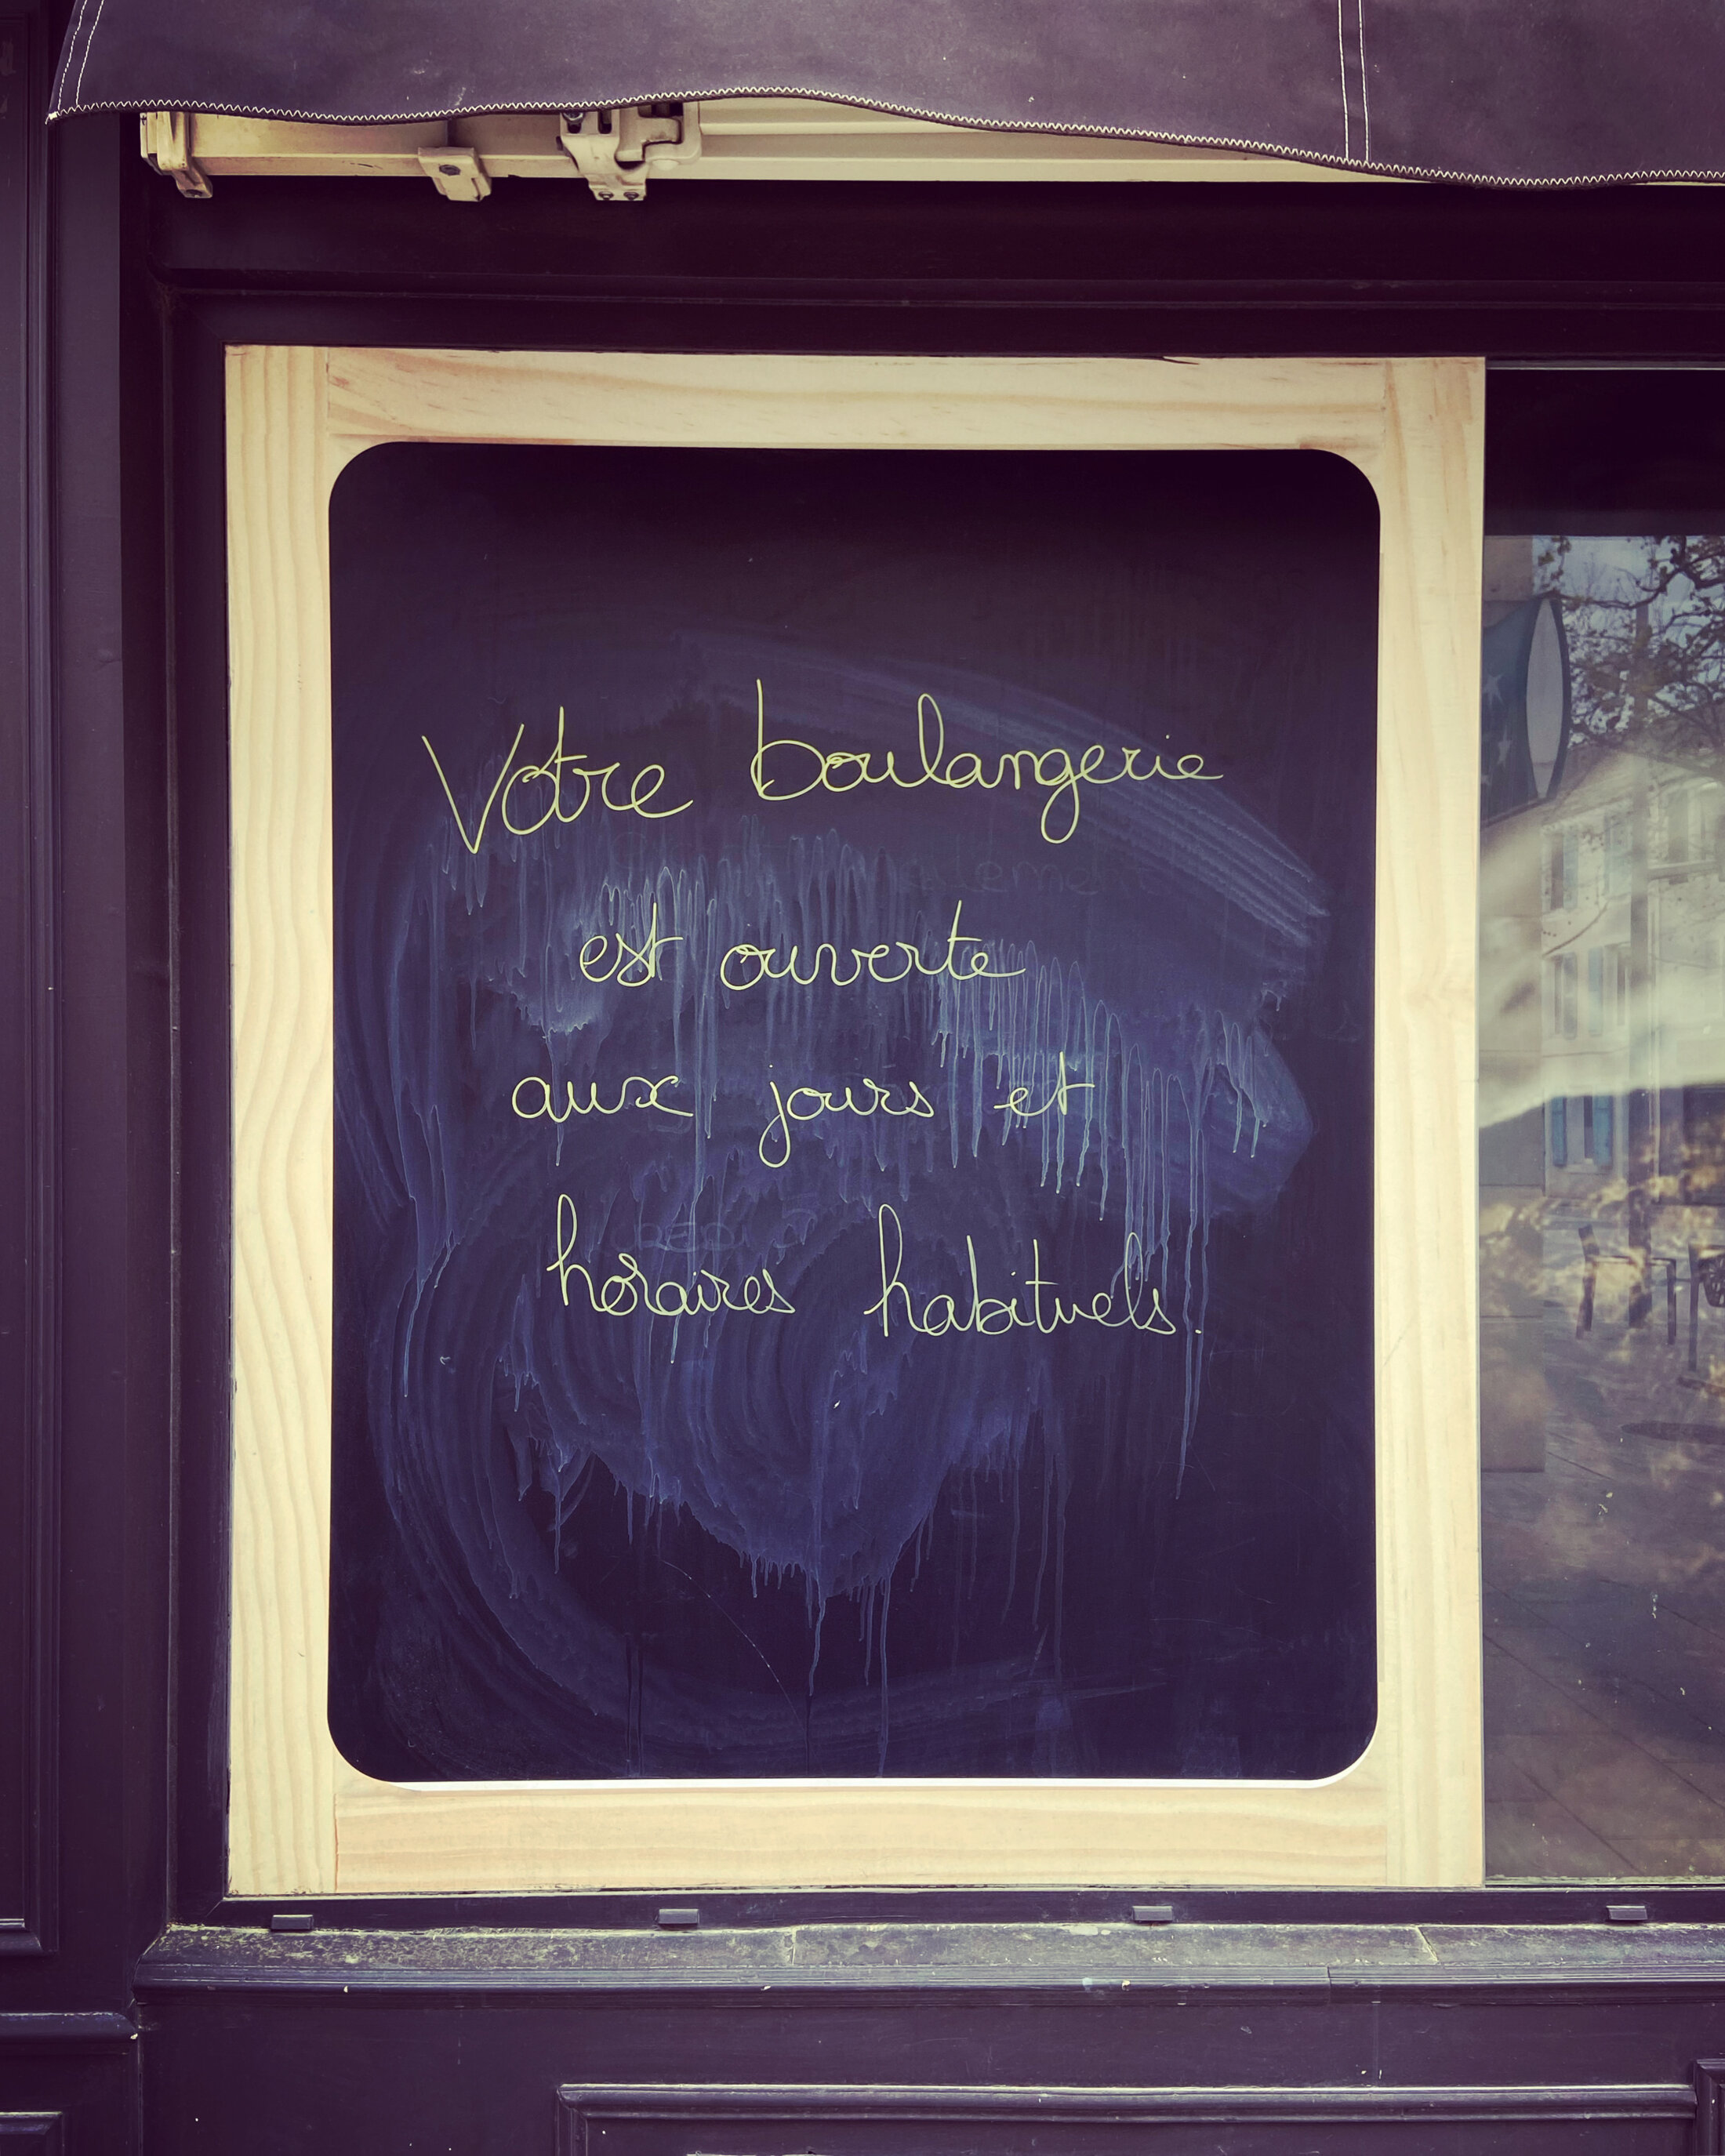 Votre boulangerie
est ouverte
aux jours et
horaires habituels.